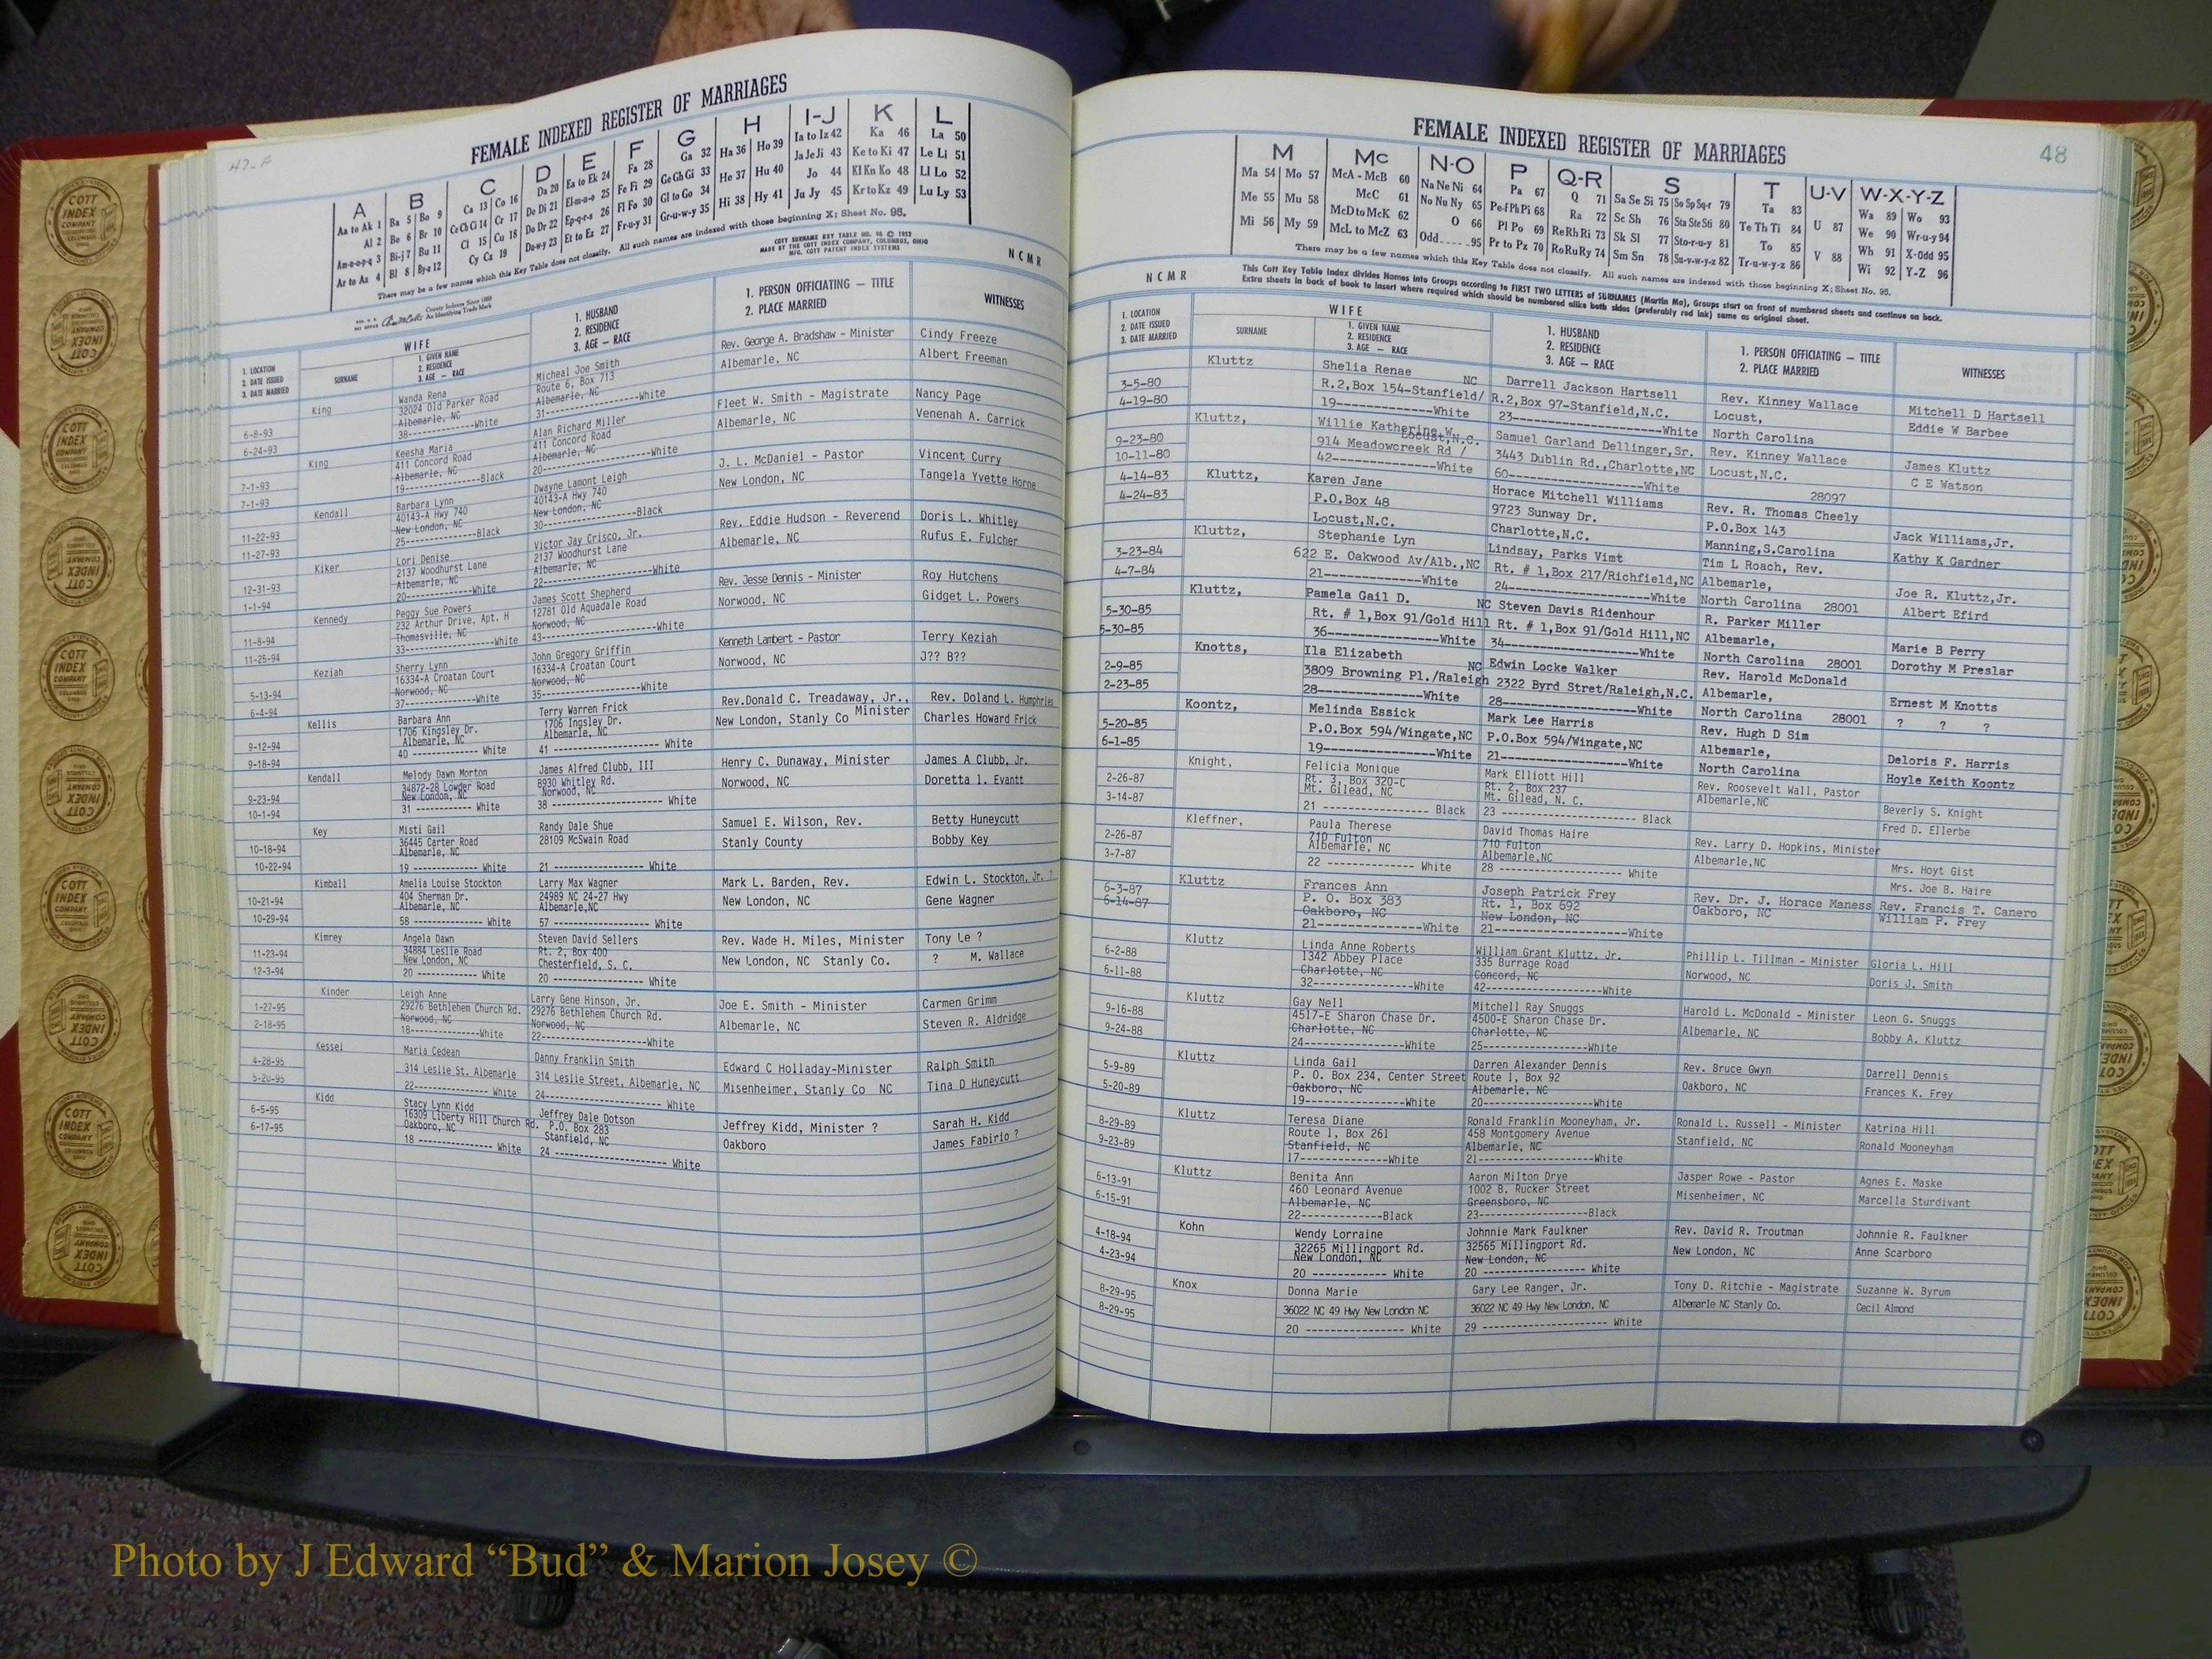 47-F
FEMALE INDEXED REGISTER OF MARRIAGES
A B C D E F G H I-J K L
Aa to Ak 1 Ba 5 Bo 9 Ca 13 Co 16 Da 20 Ea to Ek 24 Fa 28 Ga 32 Ha 36 Ho 39 Ia to Iz 42 Ka 46 La 50
Al 2 Be 6 Br 10 Ce Ch Ci 14 Cr 17 De Di 21 El-m-n-o 25 Fe Fi 29 Ge Gh Gi 33 He 37 Hu 40 Ja Je Ji 43 Ke to Ki 47 Le Li 51
Am-n-o-p-q 3 Bi-j 7 Bu 11 Cl 15 Cu 18 Do Dr 22 Ep-q-r-s 26 Fl Fo 30 Gl to Go 34 Hi 38 Hy 41 Jo 44 Kl Kn Ko 48 Ll Lo 52
Ar to Az 4 Bl 8 By-z 12 Cy Cz 19 Du-w-y 23 Et to Ez 27 Fr-u-y 31 Gr-u-w-y 35 Ju Jy 45 Kr to Kz 49 Lu Ly 53
There may be a few names which this Key Table does not classify. All such names are indexed with those beginning X; Sheet No. 95.
COTT SURNAME KEY TABLE NO. 96 © 1952
MADE BY THE COTT INDEX COMPANY, COLUMBUS, OHIO
MFG. COTT PATENT INDEX SYSTEMS
County Indexes Since 1888
An Identifying Trade Mark
NCMR
1. LOCATION
2. DATE ISSUED
3. DATE MARRIED
WIFE
SURNAME
1. GIVEN NAME
2. RESIDENCE
3. AGE — RACE
1. HUSBAND
2. RESIDENCE
3. AGE — RACE
1. PERSON OFFICIATING — TITLE
2. PLACE MARRIED
WITNESSES
King Wanda Rena Micheal Joe Smith Rev. George A. Bradshaw - Minister Cindy Freeze
32024 Old Parker Road Route 6, Box 713
6-8-93 Albemarle, NC Albemarle, NC Albemarle, NC Albert Freeman
6-24-93 38-----------White 31-----------White
King Keesha Maria Alan Richard Miller Fleet W. Smith - Magistrate Nancy Page
411 Concord Road 411 Concord Road
7-1-93 Albemarle, NC Albemarle, NC Albemarle, NC Venenah A. Carrick
7-1-93 19-----------Black 20-----------White
Kendall Barbara Lynn Dwayne Lamont Leigh J. L. McDaniel - Pastor Vincent Curry
40143-A Hwy 740 40143-A Hwy 740
11-22-93 New London, NC New London, NC New London, NC Tangela Yvette Horne
11-27-93 25-----------Black 30-----------Black
Kiker Lori Denise Victor Jay Crisco, Jr. Rev. Eddie Hudson - Reverend Doris L. Whitley
2137 Woodhurst Lane 2137 Woodhurst Lane
12-31-93 Albemarle, NC Albemarle, NC Albemarle, NC Rufus E. Fulcher
1-1-94 20-----------White 22-----------White
Kennedy Peggy Sue Powers James Scott Shepherd Rev. Jesse Dennis - Minister Roy Hutchens
232 Arthur Drive, Apt. H 12781 Old Aquadale Road
11-8-94 Thomasville, NC Norwood, NC Norwood, NC Gidget L. Powers
11-25-94 33-----------White 43-----------White
Keziah Sherry Lynn John Gregory Griffin Kenneth Lambert - Pastor Terry Keziah
16334-A Croatan Court 16334-A Croatan Court
5-13-94 Norwood, NC Norwood, NC Norwood, NC J?? B??
6-4-94 37-----------White 35-----------White
Kellis Barbara Ann Terry Warren Frick Rev.Donald C. Treadaway, Jr., Minister Rev. Doland L. Humphries
1706 Kingsley Dr. 1706 Ingsley Dr.
9-12-94 Albemarle, NC Albemarle, NC New London, Stanly Co Charles Howard Frick
9-18-94 40 ---------- White 41 ---------- White
Kendall Melody Dawn Morton James Alfred Clubb, III Henry C. Dunaway, Minister James A Clubb, Jr.
34872-28 Lowder Road 8930 Whitley Rd.
9-23-94 New London, NC Norwood, NC Norwood, NC Doretta l. Evantt
10-1-94 31 ---------- White 38 ---------- White
Key Misti Gail Randy Dale Shue Samuel E. Wilson, Rev. Betty Huneycutt
10-18-94 36445 Carter Road 28109 McSwain Road Stanly County Bobby Key
Albemarle, NC
10-22-94 19 ---------- White 21 ---------- White
Kimball Amelia Louise Stockton Larry Max Wagner Mark L. Barden, Rev. Edwin L. Stockton, Jr. ?
10-21-94 404 Sherman Dr. 24989 NC 24-27 Hwy New London, NC Gene Wagner
Albemarle, NC Albemarle,NC
10-29-94 58 ---------- White 57 ---------- White
Kimrey Angela Dawn Steven David Sellers Rev. Wade H. Miles, Minister Tony Le ?
11-23-94 34884 Leslie Road Rt. 2, Box 400 New London, NC Stanly Co. ? M. Wallace
New London, NC Chesterfield, S. C.
12-3-94 20 ---------- White 20 ---------- White
Kinder Leigh Anne Larry Gene Hinson, Jr. Joe E. Smith - Minister Carmen Grimm
1-27-95 29276 Bethlehem Church Rd. 29276 Bethlehem Church Rd.
2-18-95 Norwood, NC Norwood, NC Albemarle, NC Steven R. Aldridge
18-----------White 22-----------White
Kessel Maria Cedean Danny Franklin Smith Edward C Holladay-Minister Ralph Smith
4-28-95 314 Leslie St. Albemarle 314 Leslie Street, Albemarle, NC Misenheimer, Stanly Co NC Tina D Huneycutt
5-20-95 22----------- White 24----------- White
Kidd Stacy Lynn Kidd Jeffrey Dale Dotson Jeffrey Kidd, Minister ? Sarah H. Kidd
6-5-95 16309 Liberty Hill Church Rd. P.O. Box 283
6-17-95 Oakboro, NC Stanfield, NC Oakboro James Fabirio ?
18 ---------- White 24 ---------- White
48
FEMALE INDEXED REGISTER OF MARRIAGES
M Mc N-O P Q-R S T U-V W-X-Y-Z
Ma 54 Mo 57 McA - McB 60 Na Ne Ni 64 Pa 67 Q 71 Sa Se Si 75 So Sp Sq-r 79 Ta 83 U 87 Wa 89 Wo 93
Me 55 Mu 58 McC 61 No Nu Ny 65 Pe-f Ph Pi 68 Ra 72 Sc Sh 76 Sta Ste Sti 80 Te Th Ti 84 V 88 We 90 Wr-u-y 94
Mi 56 My 59 McD to McK 62 O 66 Pl Po 69 Re Rh Ri 73 Sk Sl 77 Sto-r-u-y 81 To 85 Wh 91 X-Odd 95
McL to McZ 63 Odd 95 Pr to Pz 70 Ro Ru Ry 74 Sm Sn 78 Su-v-w-y-z 82 Tr-u-w-y-z 86 Wi 92 Y-Z 96
There may be a few names which this Key Table does not classify. All such names are indexed with those beginning X; Sheet No. 95.
This Cott Key Table Index divides Names into Groups according to FIRST TWO LETTERS of SURNAMES (Martin Ma), Groups start on front of numbered sheets and continue on back.
Extra sheets in back of book to insert where required which should be numbered alike both sides (preferably red ink) same as original sheet.
NCMR
1. LOCATION
2. DATE ISSUED
3. DATE MARRIED
WIFE
SURNAME
1. GIVEN NAME
2. RESIDENCE
3. AGE — RACE
1. HUSBAND
2. RESIDENCE
3. AGE — RACE
1. PERSON OFFICIATING — TITLE
2. PLACE MARRIED
WITNESSES
Kluttz Shelia Renae Darrell Jackson Hartsell Rev. Kinney Wallace Mitchell D Hartsell
3-5-80 R.2,Box 154-Stanfield/ NC R.2,Box 97-Stanfield,N.C. Locust, Eddie W Barbee
4-19-80 19-------------White 23-------------White North Carolina
Kluttz, Willie Katherine W. Samuel Garland Dellinger,Sr. Rev. Kinney Wallace James Kluttz
9-23-80 914 Meadowcreek Rd / Locust,N.C. 3443 Dublin Rd.,Charlotte,NC Locust,N.C. C E Watson
10-11-80 42-------------White 60-------------White 28097
4-14-83 Kluttz, Karen Jane Horace Mitchell Williams Rev. R. Thomas Cheely Jack Williams,Jr.
4-24-83 P.O.Box 48 9723 Sunway Dr. P.O.Box 143 Kathy K Gardner
Locust,N.C. Charlotte,N.C. Manning,S.Carolina
Kluttz, Stephanie Lyn Lindsay, Parks Vimt Tim L Roach, Rev. Joe R. Kluttz,Jr.
3-23-84 622 E. Oakwood Av/Alb.,NC Rt. # 1,Box 217/Richfield,NC Albemarle, Albert Efird
4-7-84 21-------------White 24-------------White North Carolina 28001
Kluttz, Pamela Gail D. Steven Davis Ridenhour R. Parker Miller Marie B Perry
5-30-85 Rt. # 1,Box 91/Gold Hill NC Rt. # 1,Box 91/Gold Hill,NC Albemarle, Dorothy M Preslar
5-30-85 36-------------White 34-------------White North Carolina 28001
Knotts, Ila Elizabeth Edwin Locke Walker Rev. Harold McDonald Ernest M Knotts
2-9-85 3809 Browning Pl./Raleigh NC 2322 Byrd Stret/Raleigh,N.C. Albemarle, ? ? ?
2-23-85 28-------------White 28-------------White North Carolina 28001
Koontz, Melinda Essick Mark Lee Harris Rev. Hugh D Sim Deloris F. Harris
5-20-85 P.O.Box 594/Wingate,NC P.O.Box 594/Wingate,NC Albemarle, Hoyle Keith Koontz
6-1-85 19-------------White 21-------------White North Carolina
Knight, Felicia Monique Mark Elliott Hill Rev. Roosevelt Wall, Pastor Beverly S. Knight
2-26-87 Rt. 3, Box 320-C Rt. 2, Box 237 Albemarle,NC Fred D. Ellerbe
3-14-87 Mt. Gilead, NC Mt. Gilead, N. C.
21 ------------- Black 23 ------------- Black
Kleffner, Paula Therese David Thomas Haire Rev. Larry D. Hopkins, Minister Mrs. Hoyt Gist
2-26-87 710 Fulton 710 Fulton Albemarle,NC Mrs. Joe B. Haire
3-7-87 Albemarle, NC Albemarle,NC
22 ------------- White 28 ------------- White
Kluttz Frances Ann Joseph Patrick Frey Rev. Dr. J. Horace Maness Rev. Francis T. Canero
6-3-87 P. O. Box 383 Rt. 1, Box 692 Oakboro, NC William P. Frey
6-14-87 Oakboro, NC New London, NC
21-------------White 21-------------White
Kluttz Linda Anne Roberts William Grant Kluttz, Jr. Phillip L. Tillman - Minister Gloria L. Hill
6-2-88 1342 Abbey Place 335 Burrage Road
6-11-88 Charlotte, NC Concord, NC Norwood, NC Doris J. Smith
32-------------White 42-------------White
Kluttz Gay Nell Mitchell Ray Snuggs Harold L. McDonald - Minister Leon G. Snuggs
9-16-88 4517-E Sharon Chase Dr. 4500-E Sharon Chase Dr.
9-24-88 Charlotte, NC Charlotte, NC Albemarle, NC Bobby A. Kluttz
24-------------White 25-------------White
Kluttz Linda Gail Darren Alexander Dennis Rev. Bruce Gwyn Darrell Dennis
5-9-89 P. O. Box 234, Center Street Route 1, Box 92
5-20-89 Oakboro, NC Albemarle, NC Oakboro, NC Frances K. Frey
19-------------White 20-------------White
Kluttz Teresa Diane Ronald Franklin Mooneyham, Jr. Ronald L. Russell - Minister Katrina Hill
8-29-89 Route 1, Box 261 458 Montgomery Avenue
9-23-89 Stanfield, NC Albemarle, NC Stanfield, NC Ronald Mooneyham
17-------------White 21-------------White
Kluttz Benita Ann Aaron Milton Drye Jasper Rowe - Pastor Agnes E. Maske
6-13-91 460 Leonard Avenue 1002 B. Rucker Street
6-15-91 Albemarle, NC Greensboro, NC Misenheimer, NC Marcella Sturdivant
22-------------Black 23-------------Black
Kohn Wendy Lorraine Johnnie Mark Faulkner Rev. David R. Troutman Johnnie R. Faulkner
4-18-94 32265 Millingport Rd. 32565 Millingport Rd.
4-23-94 New London, NC New London, NC New London, NC Anne Scarboro
20 ------------ White 20 ------------ White
Knox Donna Marie Gary Lee Ranger, Jr. Tony D. Ritchie - Magistrate Suzanne W. Byrum
8-29-95 36022 NC 49 Hwy New London NC 36022 NC 49 Hwy New London, NC Albemarle NC Stanly Co. Cecil Almond
8-29-95 20 ------------ White 29 ------------ White
COTT INDEX COMPANY
Photo by J Edward “Bud” & Marion Josey ©